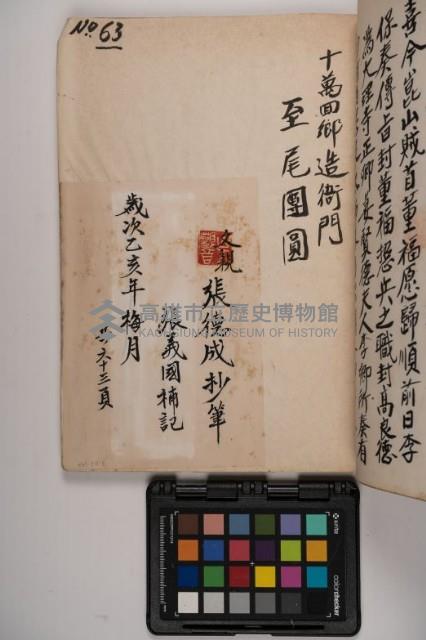 No 63
壽今崑山賊首董福愿歸順前日李
保奏傳旨封董福總兵之職封高良德
為大理寺正卿妻賢德夫人李卿所奏有
十萬回鄉造衙門
至尾團圓
文親
張 成抄筆
張義國補記
歲次乙亥年梅月
共六十三頁
高雄市立歷史博物館
KAOHSIUNG MUSEUM OF HISTORY
colorchecker
x-rite